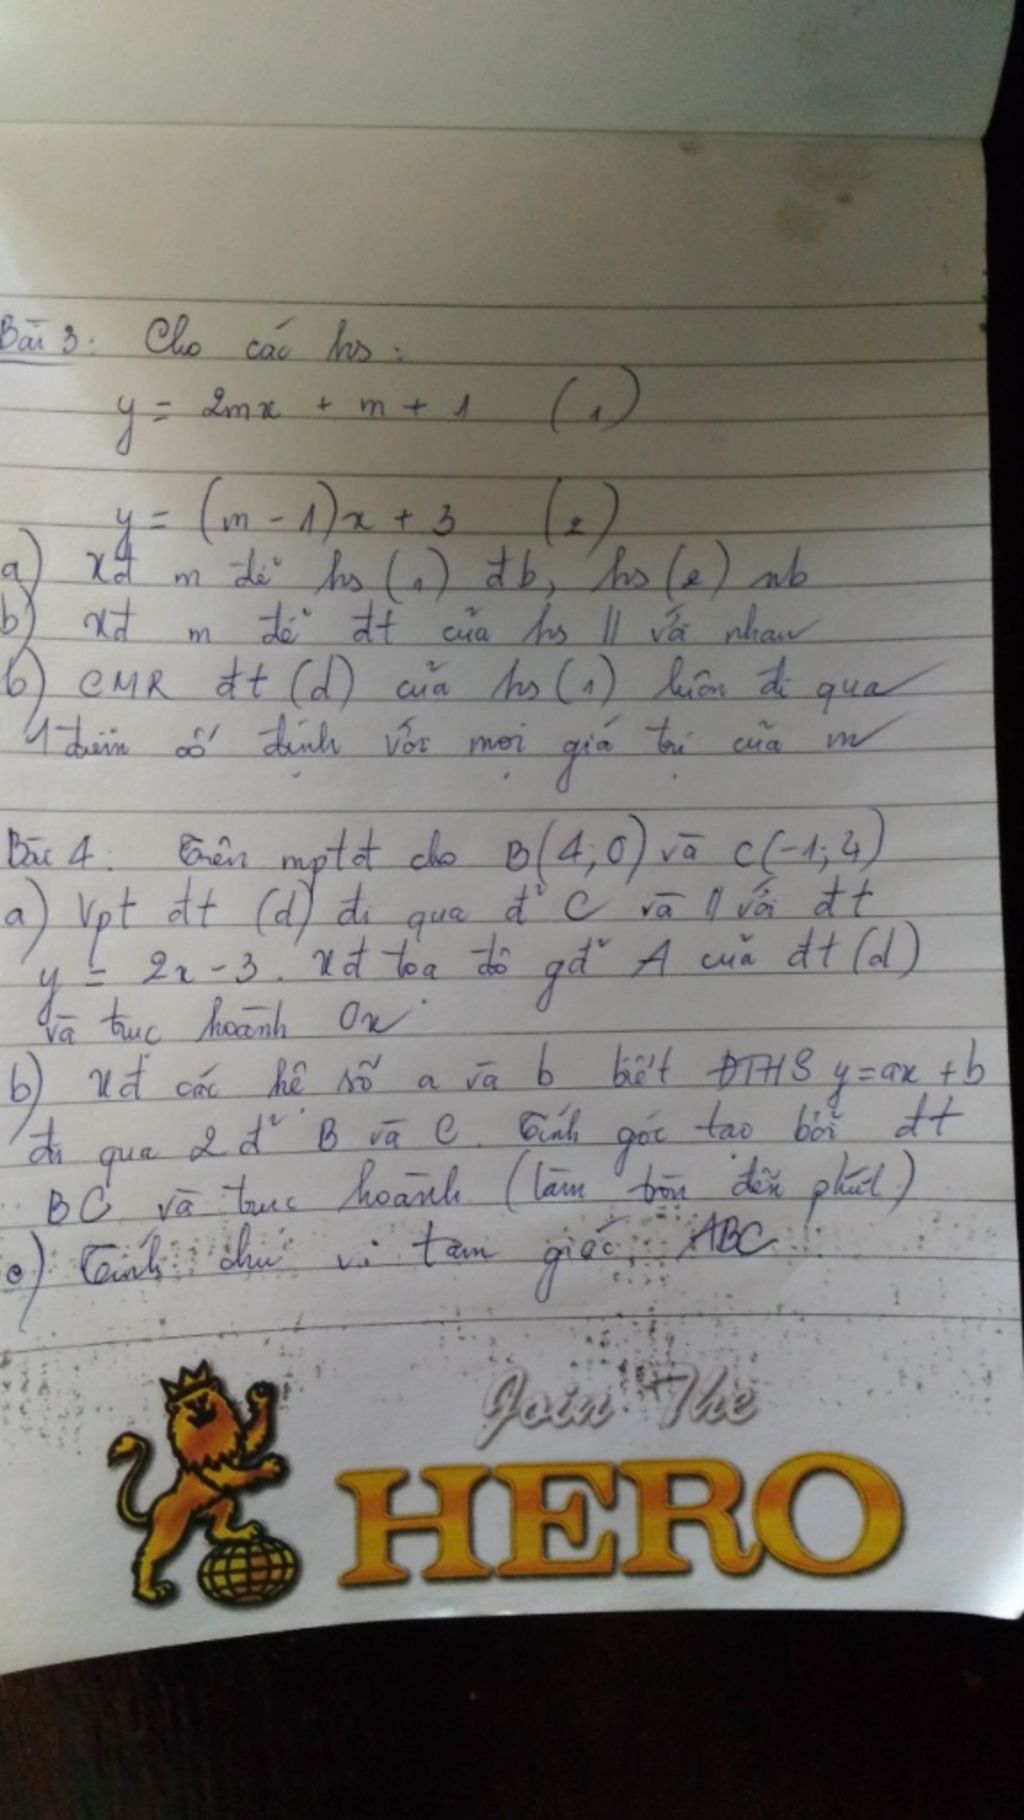 Bài 3: Cho các hs:
y = 2mx + m + 1 (1)
y = (m - 1)x + 3 (2)
a) xđ m để hs (1) đb, hs (2) nb
b) xđ m để đt của hs // với nhau
b) CMR đt (d) của hs (1) luôn đi qua
1 điểm cố định với mọi giá trị của m
Bài 4: Trên mptđ cho B(4;0) và C(-1;4)
a) Vpt đt (d) đi qua đ² C và // với đt
y = 2x - 3. xđ toạ độ gđ² A của đt (d)
và trục hoành Ox
b) xđ các hệ số a và b biết ĐTHS y = ax + b
đi qua 2 đ² B và C. Tính góc tạo bởi đt
BC và trục hoành (làm tròn đến phút)
c) Tính chu vi tam giác ABC
Join The
HERO